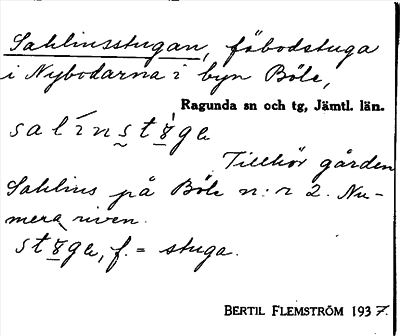 Sahlinsstugan, fäbodstuga
i Nybodarna i byn Böle,
Ragunda sn och tg, Jämtl. län.
Tillhör gården
Sahlins på Böle n:r 2. Nu-
mera riven.
f. = stuga.
BERTIL FLEMSTRÖM 1937.